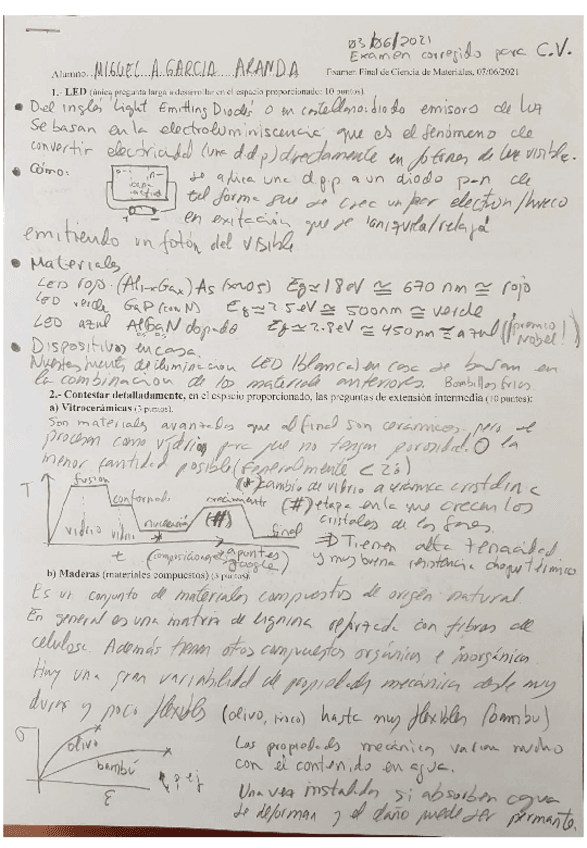 03/06/2021
Examen corregido para C.V.
Alumno: MIGUEL A. GARCIA ARANDA
Examen Final de Ciencia de Materiales, 07/06/2021
1.- LED (única pregunta larga a desarrollar en el espacio proporcionado: 10 puntos)
Del inglés "Light Emitting Diodes" o en castellano: diodo emisores de luz
Se basan en la electroluminiscencia que es el fenómeno de
convertir electricidad (una d.d.p) directamente en fotones de luz visible.
Cómo:
se aplica una d.p.p a un diodo p-n de
tal forma que se crea un par electron/hueco
en exitación que se aniquila/relaja
emitiendo un fotón del visible
Materiales
LED rojo (Al1-xGax)As Eg≈1.8eV ≅ 670 nm ≅ rojo
LED verde GaP (con N) Eg≈2.5eV ≅ 500nm ≅ verde
LED azul AlGaN dopado Eg≈2.8eV ≅ 450nm ≅ azul (¡premio Nobel!)
Dispositivos en casa.
Nuestras fuentes de iluminacion LED (blanca) en casa se basan en
la combinacion de los materiale anteriores. Bombillas frías.
2.- Contestar detalladamente, en el espacio proporcionado, las preguntas de extensión intermedia (10 puntos):
a) Vitrocerámicas (5 puntos).
Son materiales avanzados que al final son cerámicos pero se
procesan como vidrios para que no tengan porosidad. O la
menor cantidad posible (generalmente < 2%)
(*) cambio de vidrio a cerámica cristalina
T
fusion
conformado
crecimiento
vidrio
vidrio
nucleación
(#)
final
t
(composiciones apuntes google)
(#) etapa en la que crecen los
cristales de las fases.
⇒ Tienen alta tenacidad
y muy buena resistencia choque térmico
b) Maderas (materiales compuestos) (5 puntos).
Es un conjunto de materiales compuestos de origen natural
En general es una matriz de lignina reforzada con fibras de
celulosa. Además tienen otros compuestos orgánicos e inorgánicos.
Hay una gran variabilidad de propiedades mecánicas desde muy
duras y poco flexibles (olivo, ) hasta muy flexibles (bambú)
σ
olivo
bambú
p.ej
ε
Las propiedades mecánicas varian mucho
con el contenido en agua.
Una vez instaladas si absorben agua
se deforman y el daño puede ser permante.